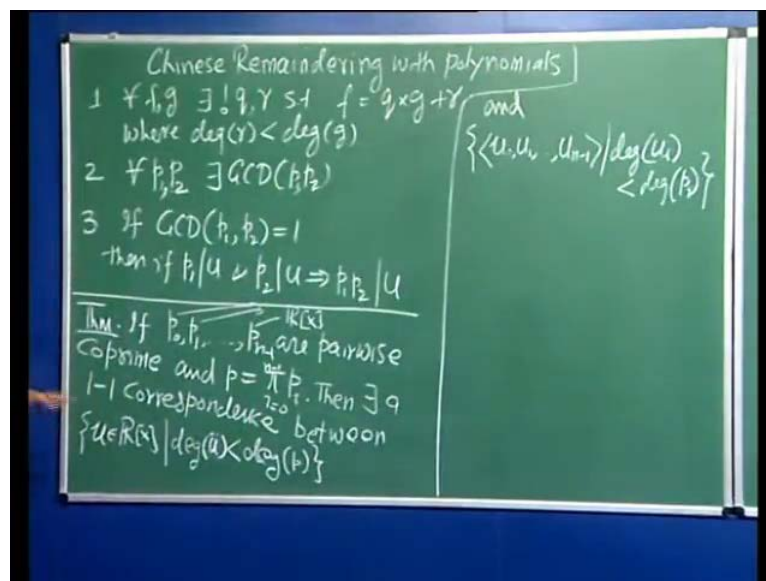 Chinese Remaindering with polynomials
1 ∀ f,g ∃! q,r st f = q×g+r
where deg(r) < deg(g)
2 ∀ p₁,p₂ ∃ GCD(p₁,p₂)
3 If GCD(p₁,p₂)=1
then if p₁|u & p₂|u ⇒ p₁p₂|u
Thm. If p₀,p₁,...,pₙ₋₁ are pairwise
ℝ[x]
coprime and p = ∏ᵢ₌₀ⁿ⁻¹ pᵢ. Then ∃ a
1-1 correspondence between
{u∈ℝ[x] | deg(u)<deg(p)}
and
{⟨u₀,u₁,..,uₙ₋₁⟩ | deg(uᵢ)
< deg(pᵢ)}